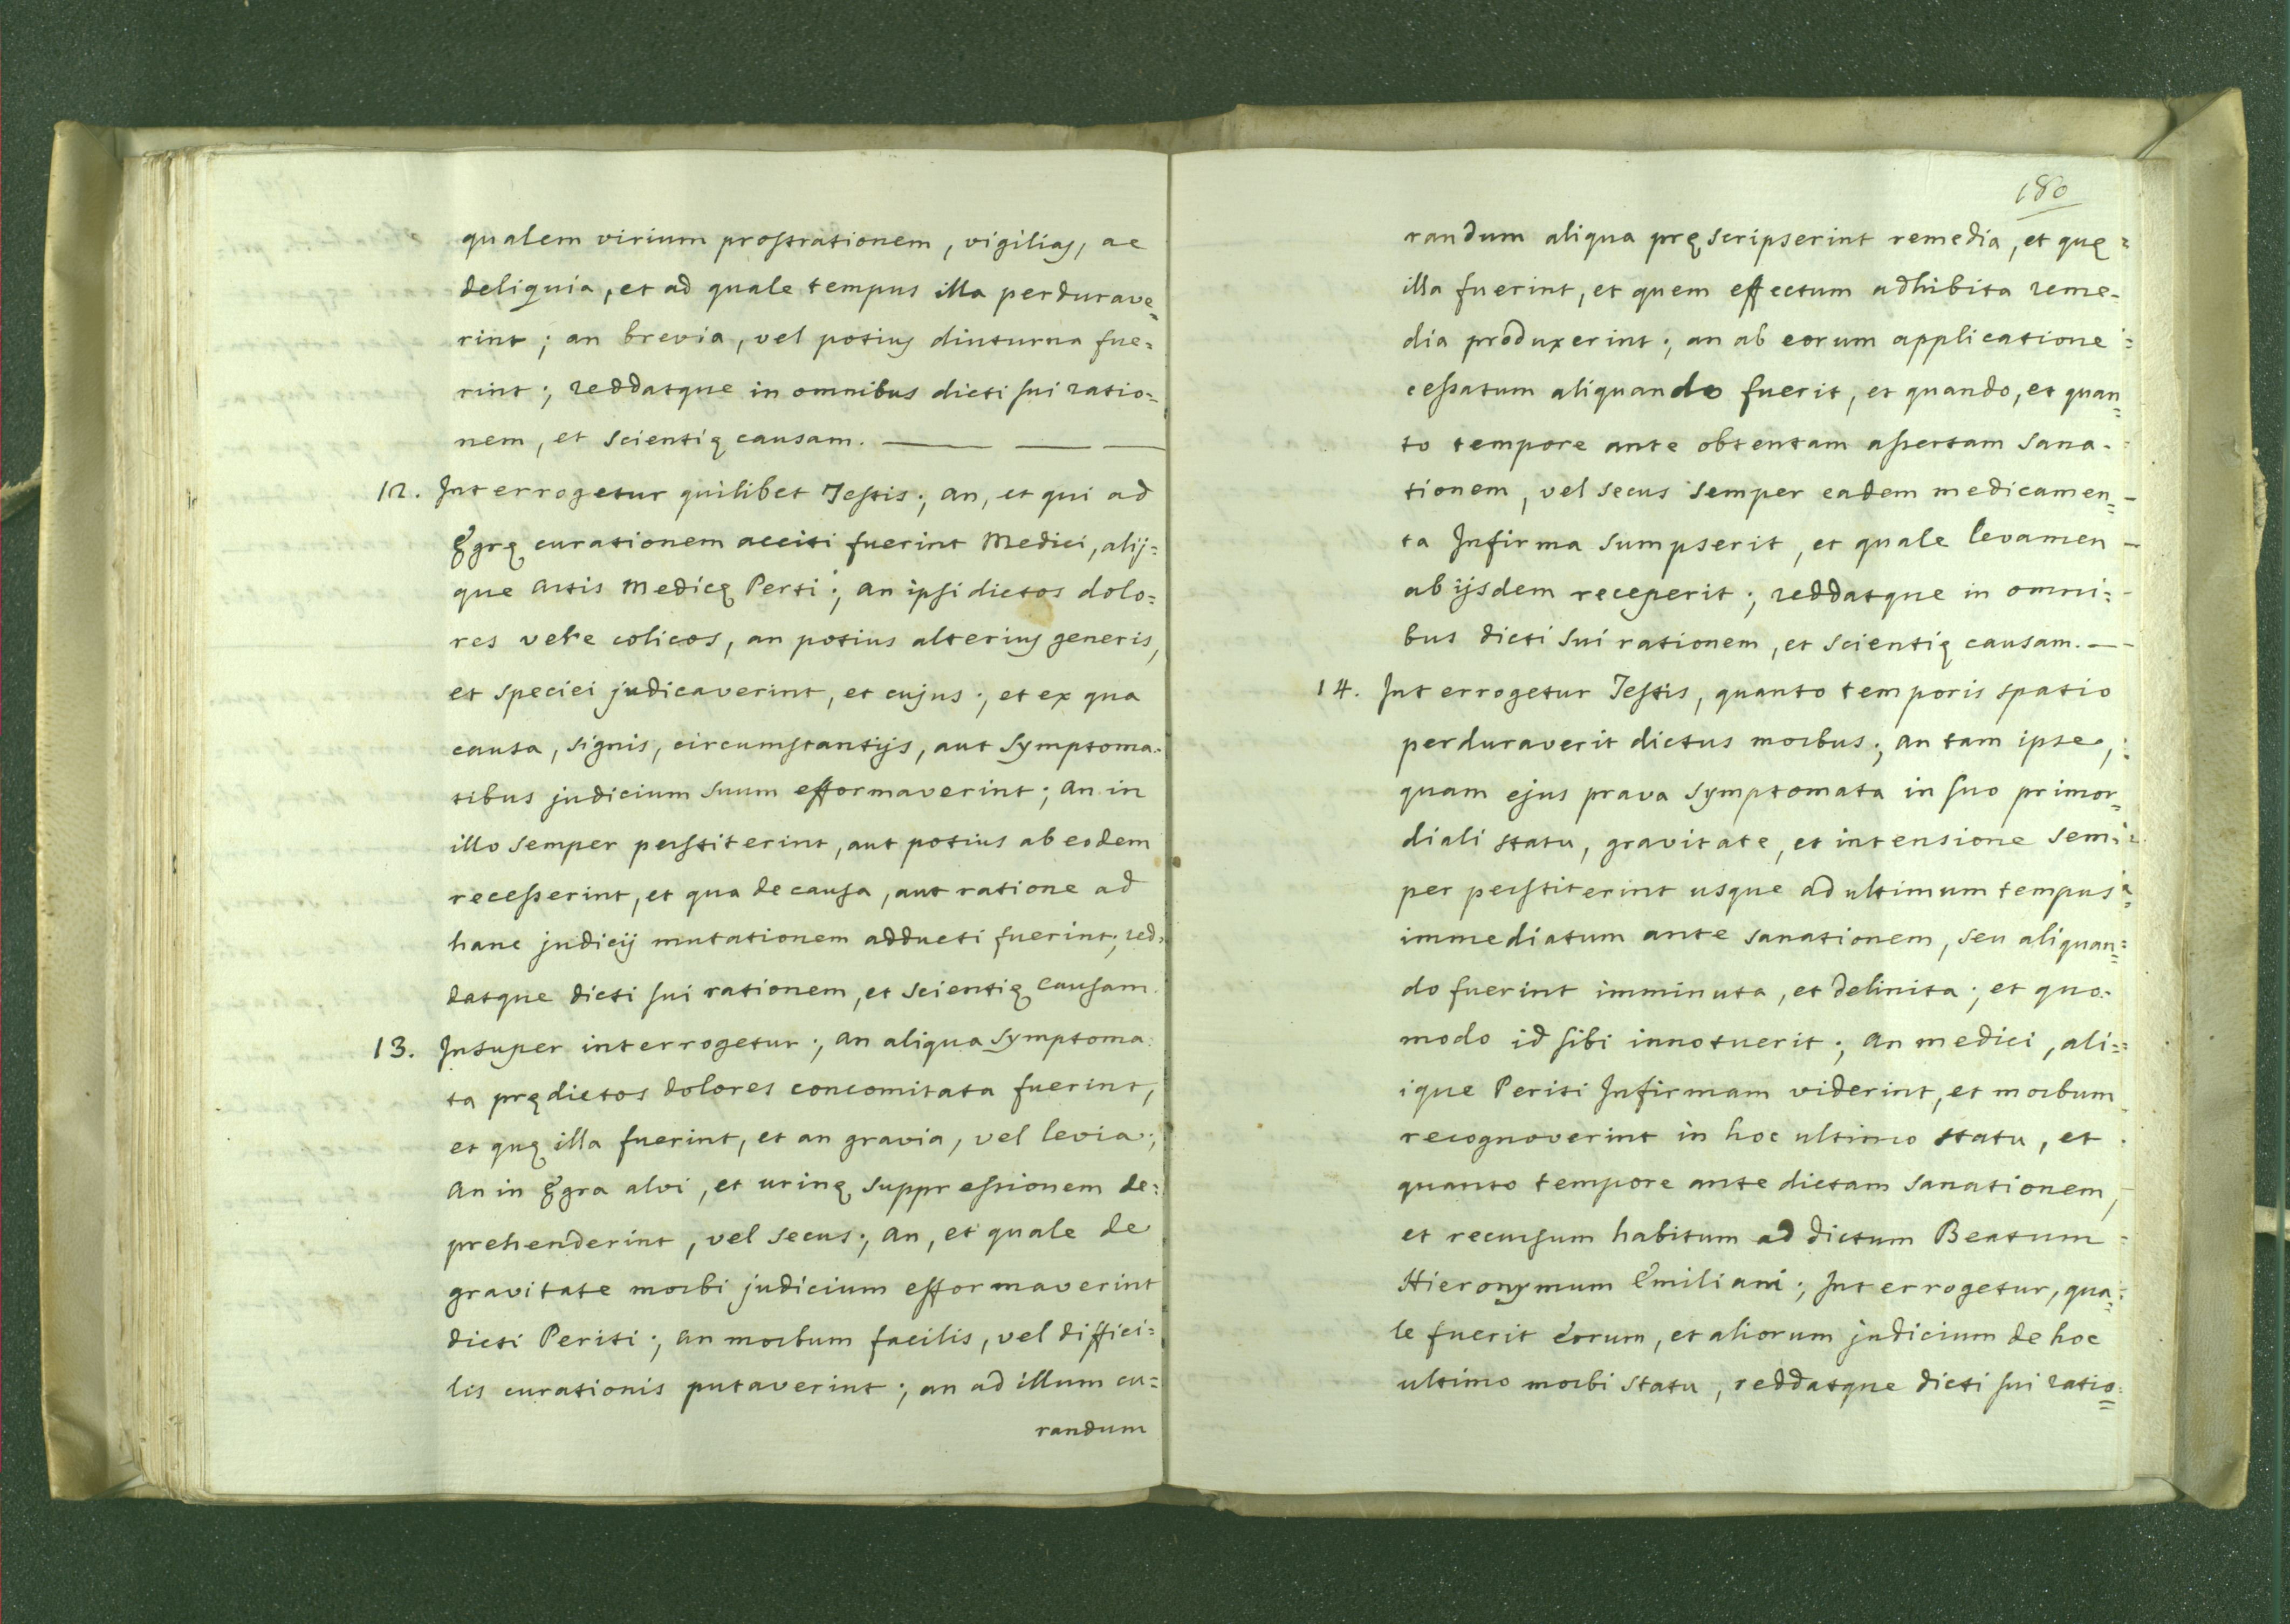 qualem virium prostrationem, vigilias, ac
deliquia, et ad quale tempus illa perdurave=
rint; an brevia, vel potius diuturna fue=
rint; reddatque in omnibus dicti sui ratio=
nem, et scientię causam.
12. Interrogetur quilibet Testis; an, et qui ad
Ęgrę curationem acciti fuerint Medici, alij=
que Artis Medicę Perti; an ipsi dictos dolo=
res vere colicos, an potius alterius generis,
et speciei judicaverint, et cujus; et ex qua
causa, signis, circumstantijs, aut symptoma=
tibus judicium suum efformaverint; an in
illo semper perstiterint, aut potius ab eodem
recesserint, et qua de causa, aut ratione ad
hanc judicij mutationem adducti fuerint; red=
datque dicti sui rationem, et scientię causam.
13. Insuper interrogetur; an aliqua symptoma=
ta prędictos dolores concomitata fuerint,
et quę illa fuerint, et an gravia, vel levia;
An in Ęgra alvi, et urinę suppressionem de=
prehenderint, vel secus; an, et quale de
gravitate morbi judicium efformaverint
dicti Periti; an morbum facilis, vel diffici=
lis curationis putaverint; an ad illum cu=
randum
180
randum aliqua pręscripserint remedia, et quę
illa fuerint, et quem effectum adhibita reme=
dia produxerint; an ab eorum applicatione
cessatum aliquando fuerit, et quando, et quan=
to tempore ante obtentam assertam sana=
tionem, vel secus semper eadem medicamen=
ta Infirma sumpserit, et quale levamen
ab ijsdem receperit; reddatque in omni=
bus dicti sui rationem, et scientię causam.
14. Interrogetur Testis, quanto temporis spatio
perduraverit dictus morbus; an tam ipse,
quam ejus prava symptomata in suo primor=
diali statu, gravitate, et intensione sem=
per perstiterint usque ad ultimum tempus
immediatum ante sanationem, seu aliquan=
do fuerint imminuta, et delinita; et quo=
modo id sibi innotuerit; an medici, ali=
ique Periti Infirmam viderint, et morbum
recognoverint in hoc ultimo statu, et
quanto tempore ante dictam sanationem,
et recursum habitum ad dictum Beatum
Hieronymum Emiliani; Interrogetur, qua=
le fuerit eorum, et aliorum judicium de hoc
ultimo morbi statu, reddatque dicti sui ratio=